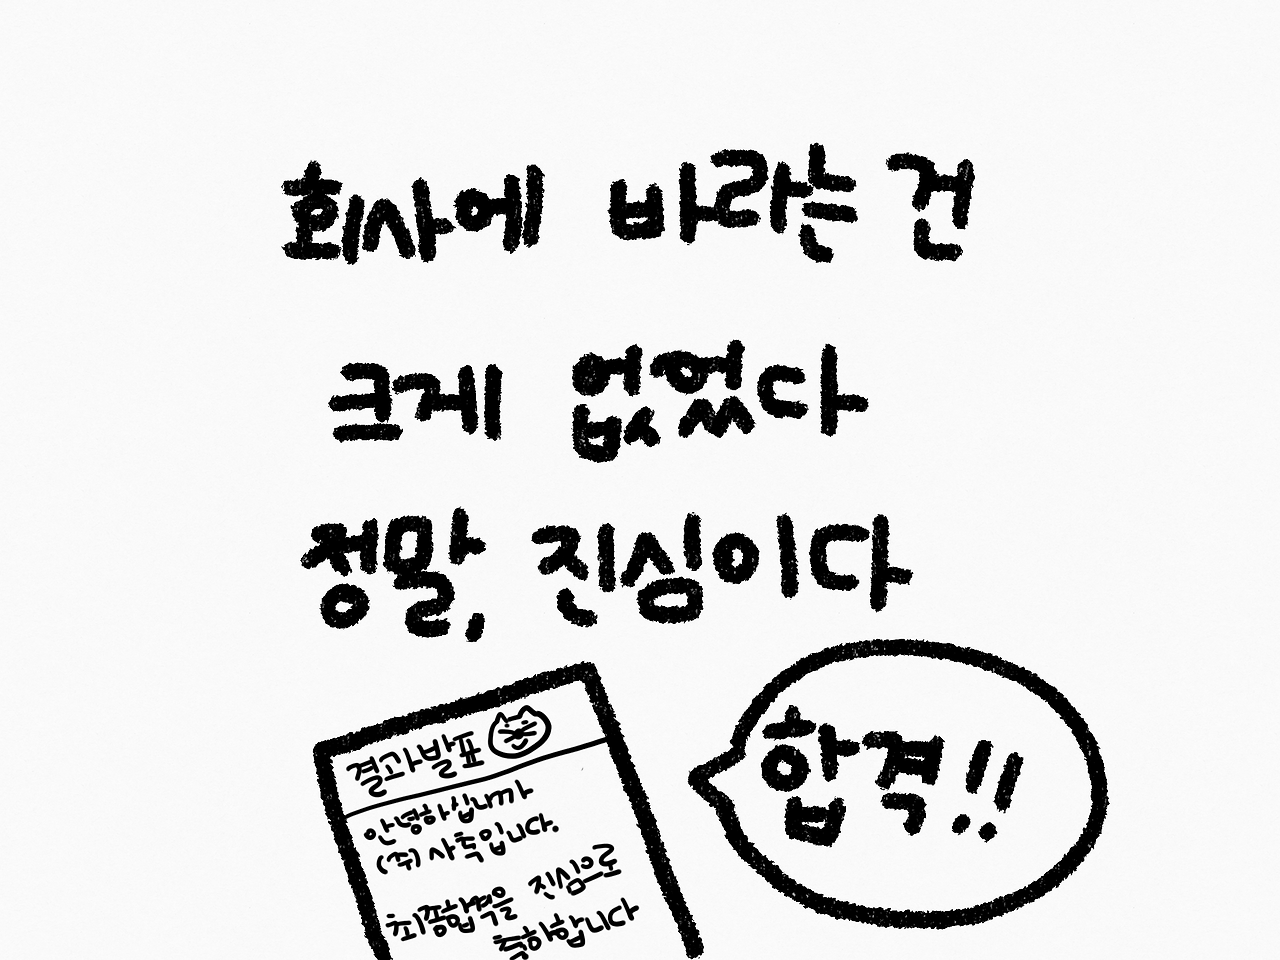 회사에 바라는 건
크게 없었다
정말, 진심이다
합격!!
결과발표
안녕하십니까
(주) 사축입니다.
최종합격을 진심으로
축하합니다